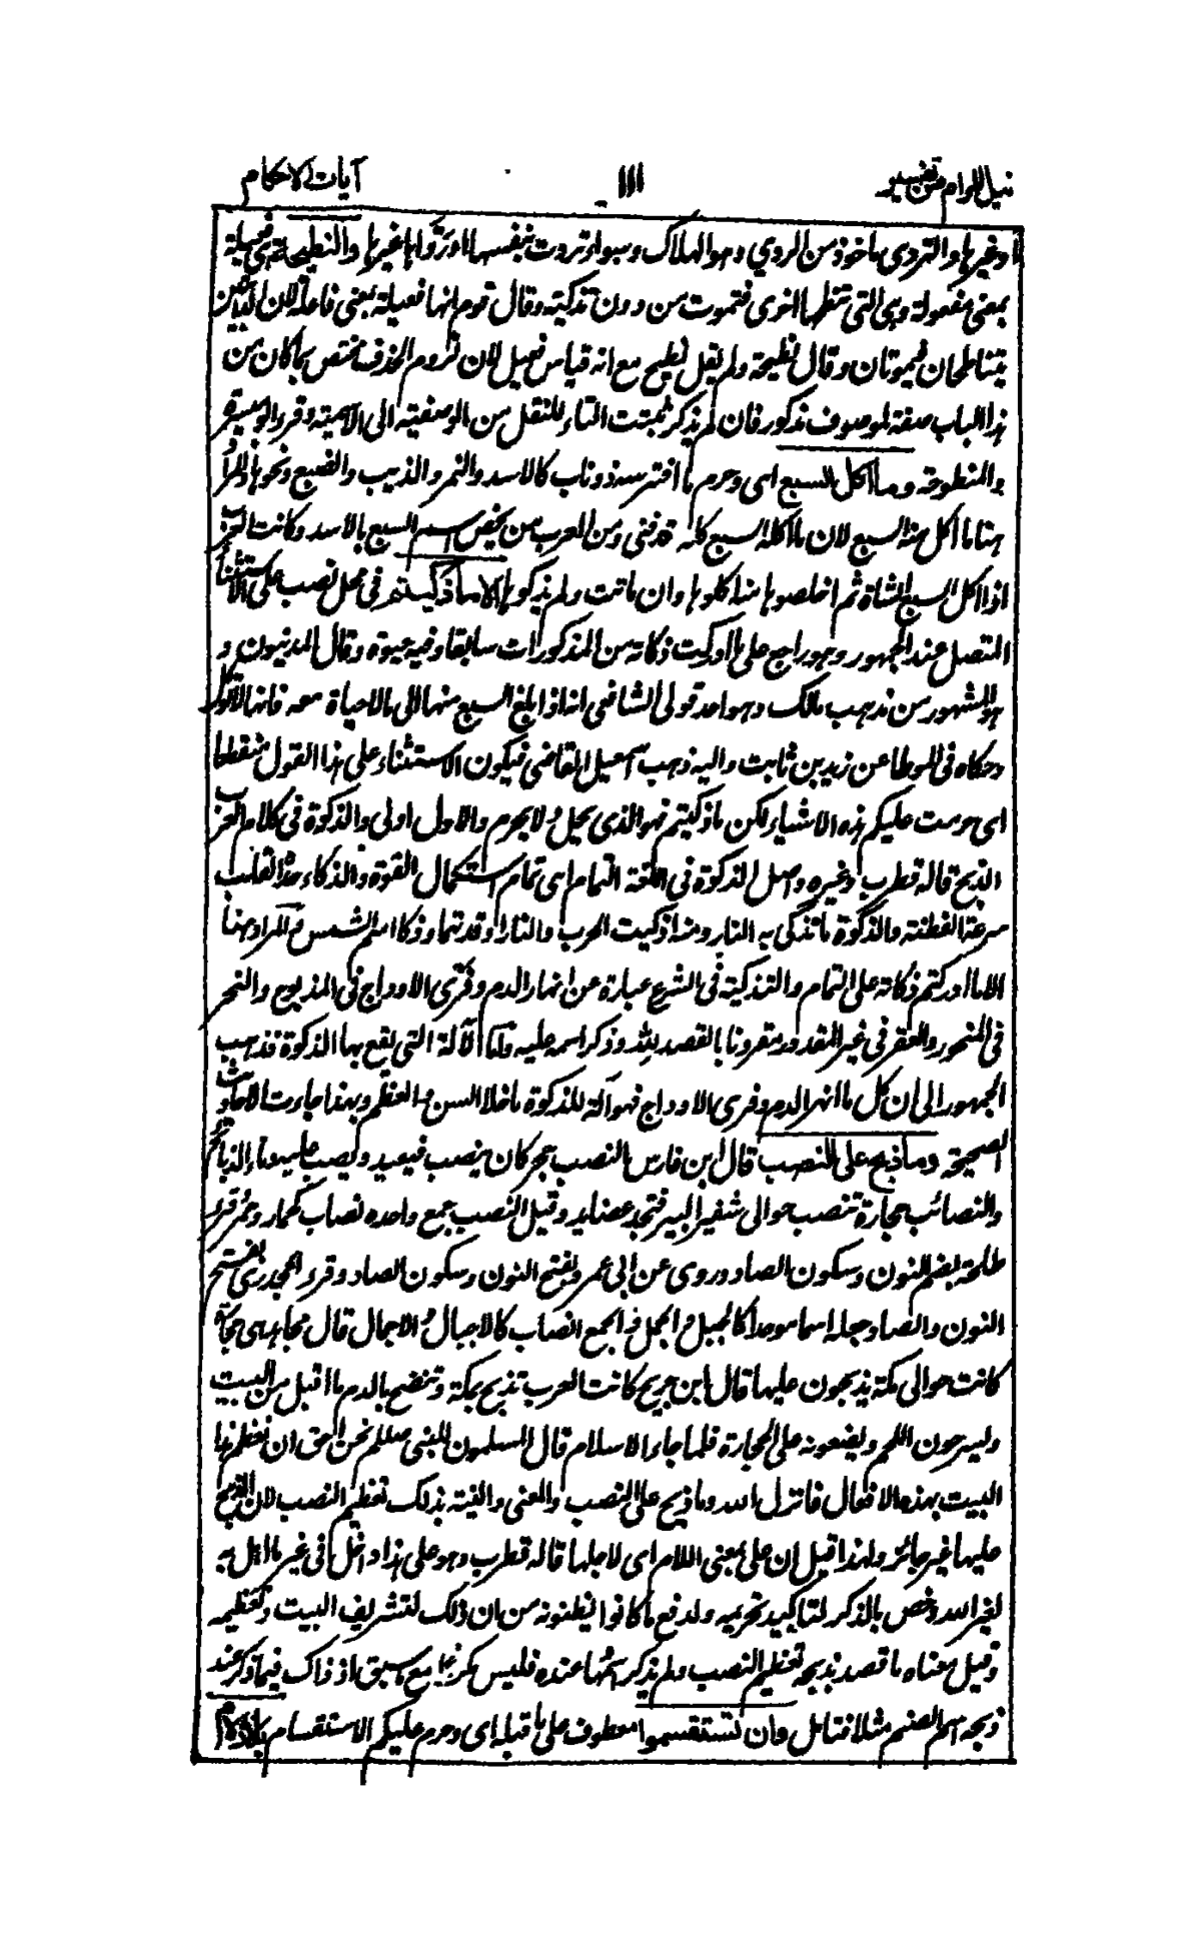 نيل المرام من تفسير ١١١ آيات الاحكام
او غيرها والتردى ماخوذ من الردي وهو الهلاك وسواء تردت بنفسها او رداها غيرها والنطيحة هى فعيلة
بمعنى مفعولة وهى التى تنطحها اخرى فتموت من دون تذكية وقال قوم انها فعيلة بمعنى فاعلة لان الدابتين
يتناطحان فيموتان وقال نطيحة ولم يقل نطيح مع انه قياس فعيل لان لزوم الحذف مختص بما كان من
هذا الباب صفة لموصوف مذكور فان لم يذكر ثبتت التاء للنقل من الوصفية الى الاسمية وقرء ابو ميسرة
والمنطوحة وما اكل السبع اى وحرم ما افترسه ذو ناب كالاسد والنمر والذيب والضبع ونحوها والمراد
هنا ما اكل منه السبع لان ما اكله السبع كله قد فنى ومن العرب من يخص اسم السبع بالاسد وكانت العرب
اذا اكل السبع الشاة ثم اخلصوها منه اكلوها وان ماتت ولم يذكوها الا ما ذكيتم فى محل نصب على الاستثناء
المتصل عند الجمهور وهو راجع على ما ادركت ذكاته من المذكورات سابقا وفيه حيوة وقال المدنيون و
هو المشهور من مذهب مالك وهو احد قولى الشافعى انه اذا بلغ السبع منها الى ما لا حياة معه فانها لا تؤكل
وحكاه فى الموطا عن زيد بن ثابت واليه ذهب اسمعيل القاضى فيكون الاستثناء على هذا القول منقطعا
اى حرمت عليكم هذه الاشياء لكن ما ذكيتم فهو الذى يحل ولا يحرم والاول اولى والذكوة فى كلام العرب
الذبح قاله قطرب وغيره واصل الذكوة فى اللغة التمام اى تمام استكمال القوة والذكاء حدة القلب
سرعة الفطنة والذكوة ما تذكى به النار ومنه اذكيت الحرب والنار اوقدتها وذكا اسم الشمس والمراد هنا
الا ما ادركتم ذكاته على التمام والتذكية فى الشرع عبارة عن انهار الدم وفرى الاوداج فى المذبوح والنحر
فى المنحور والعقر فى غير المقدور مقرونا بالقصد لله وذكر اسمه عليه واما الآلة التى يقع بها الذكوة فذهب
الجمهور الى ان كل ما انهر الدم وفرى الاوداج فهو آلة للذكوة ما خلا السن والعظم وبهذا جاءت الاحاديث
الصحيحة وما ذبح على النصب قال ابن فارس النصب حجر كان ينصب فيعبد ويصب عليه دماء الذبائح
والنصائب حجارة تنصب حوالى شفير البير فتجعل عضايد وقيل النصب جمع واحده نصاب كحمار وحمر وقرء
طلحة بضم النون وسكون الصاد وروى عن ابى عمرو بفتح النون وسكون الصاد وقرء الجحدرى بفتح
النون والصاد جعله اسما موحدا كالجبل والجمل والجمع انصاب كالاجبال والاجمال قال مجاهد هى حجارة
كانت حوالى مكة يذبحون عليها قال ابن جريج كانت العرب تذبح بمكة وتنضح بالدم ما اقبل من البيت
ويشرحون اللحم ويضعونه على الحجارة فلما جاء الاسلام قال المسلمون للنبى صلعم نحن احق ان نعظم هذا
البيت بهذه الافعال فانزل الله وما ذبح على النصب والمعنى والنية بذلك تعظيم النصب لان الذبح
عليها غير جائز ولهذا قيل ان على بمعنى اللام اى لاجلها قاله قطرب وهو على هذا داخل فى غير ما اهل به
لغير الله وخص بالذكر لتاكيد تحريمه ولدفع ما كانوا يظنونه من ان ذلك لتشريف البيت وتعظيمه
وقيل معناه ما قصد بذبحه تعظيم النصب ولم يذكر اسمها عنده فليس مكررا مع ما سبق اذ ذاك فيما ذكر عند
ذبحه اسم الصنم مثلا فتامل وان تستقسموا معطوف على ما قبله اى وحرم عليكم الاستقسام بالازلام